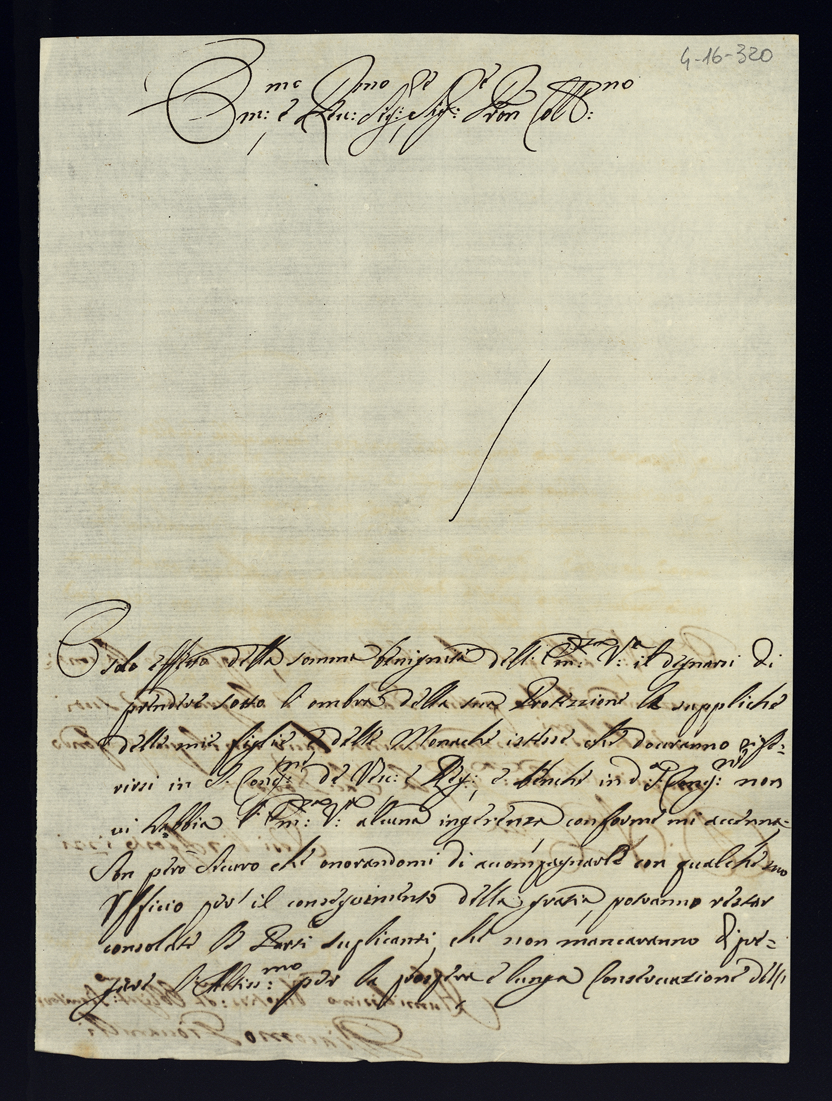 4-16-320
Em:mo e Reu:mo Sig:re Sig:re Pron Coll:mo
È solo effetto della somma benignità dell' Em:za V:a il degnarsi di
prendere sotto l'ombra della sua Protezzione le suppliche
delle mie figlie e delle Monache istesse che douranno rife=
rirsi in S. Cong:ne de Vesc: e Reg:, e benche in d:a S. Cong:ne non
vi habbia l'Em:za V:ra alcuna ingerenza conforme mi accenna=
Son però sicuro che onorandomi di accompagnarle con qualche suo
Vfficio per il conseguimento della grazia, potranno restar
consolate le Parti suplicanti, che non mancaranno di pre=
gare l'Altiss:mo per la prospera e lunga Conseruazione dell'